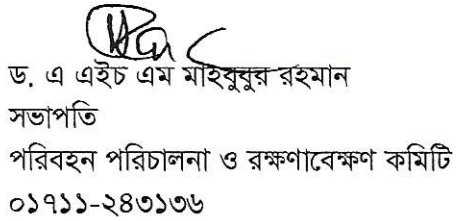 ড. এ এইচ এম মাহবুবুর রহমান
সভাপতি
পরিবহন পরিচালনা ও রক্ষণাবেক্ষণ কমিটি
০১৭১১-২৪৩১৩৬